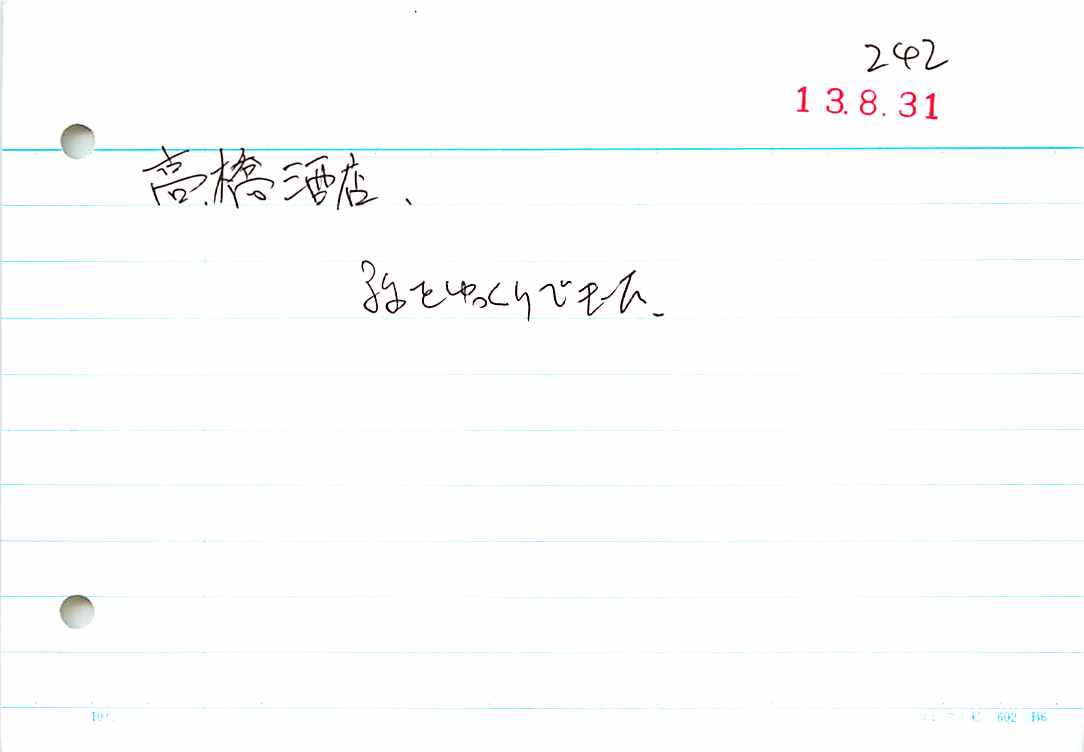 242
13.8.31
高橋酒店、
をゆっくりできた、
C 602 B6